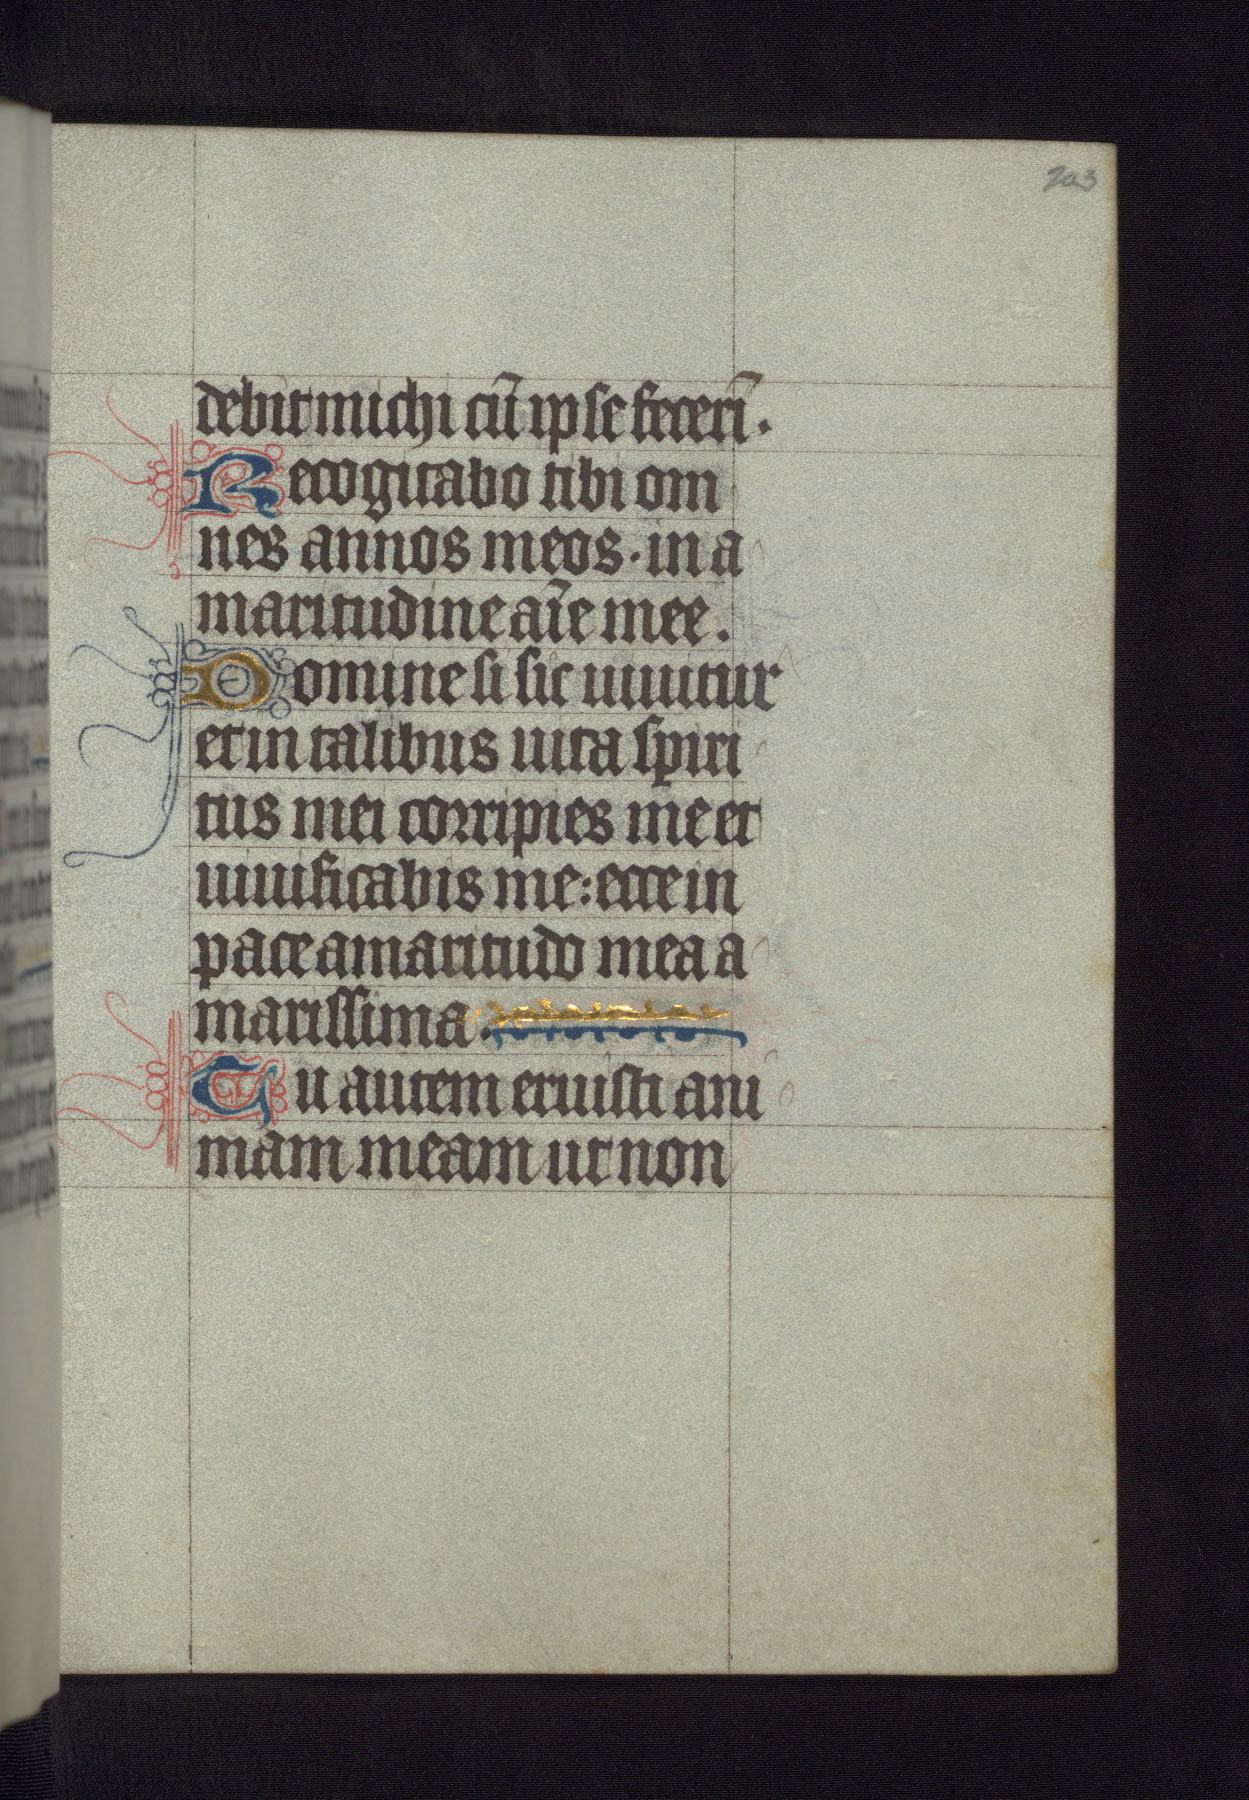 203
debit michi cū ipse fecerī.
Recogitabo tibi om
nes annos meos. in a
maritudine aīe mee.
Domine si sic uiuitur
et in talibus uita spiri
tus mei corripies me et
uiuificabis me: ecce in
pace amaritudo mea a
marissima.
Tu autem eruisti ani
mam meam ut non